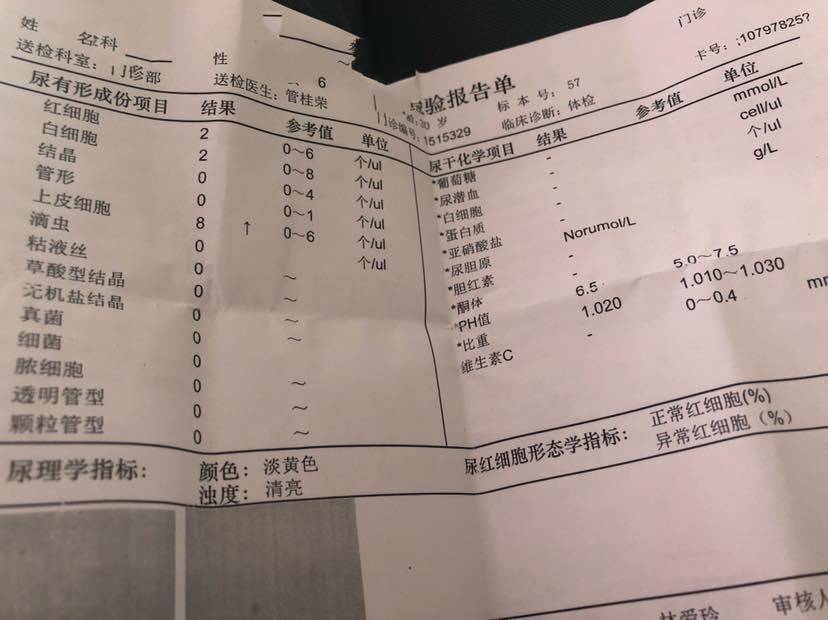 姓 名
送检科室: 门诊部
性
6
送检医生: 管桂荣
验报告单
门诊
卡号: ;10797825?
30 岁
标 本 号: 57
门诊编号: 1515329
临床诊断: 体检
尿有形成份项目 结果 参考值 单位
红细胞 2 0~6 个/ul
白细胞 2 0~8 个/ul
结晶 0 0~4 个/ul
管形 0 0~1 个/ul
上皮细胞 8 ↑ 0~6 个/ul
滴虫 0
粘液丝 0 ~
草酸型结晶 0 ~
无机盐结晶 0 ~
真菌 0
细菌 0
脓细胞 0 ~
透明管型 0 ~
颗粒管型 0 ~
尿干化学项目 结果 参考值 单位
*葡萄糖 - mmol/L
*尿潜血 - cell/ul
*白细胞 - 个/ul
*蛋白质 - g/L
*亚硝酸盐 -
*尿胆原 Norumol/L
*胆红素 -
*酮体 -
*PH值 6.5 5.0~7.5
*比重 1.020 1.010~1.030
维生素C - 0~0.4
尿理学指标: 颜色: 淡黄色
浊度: 清亮
尿红细胞形态学指标: 正常红细胞(%)
异常红细胞 (%)
林爱玲
审核人